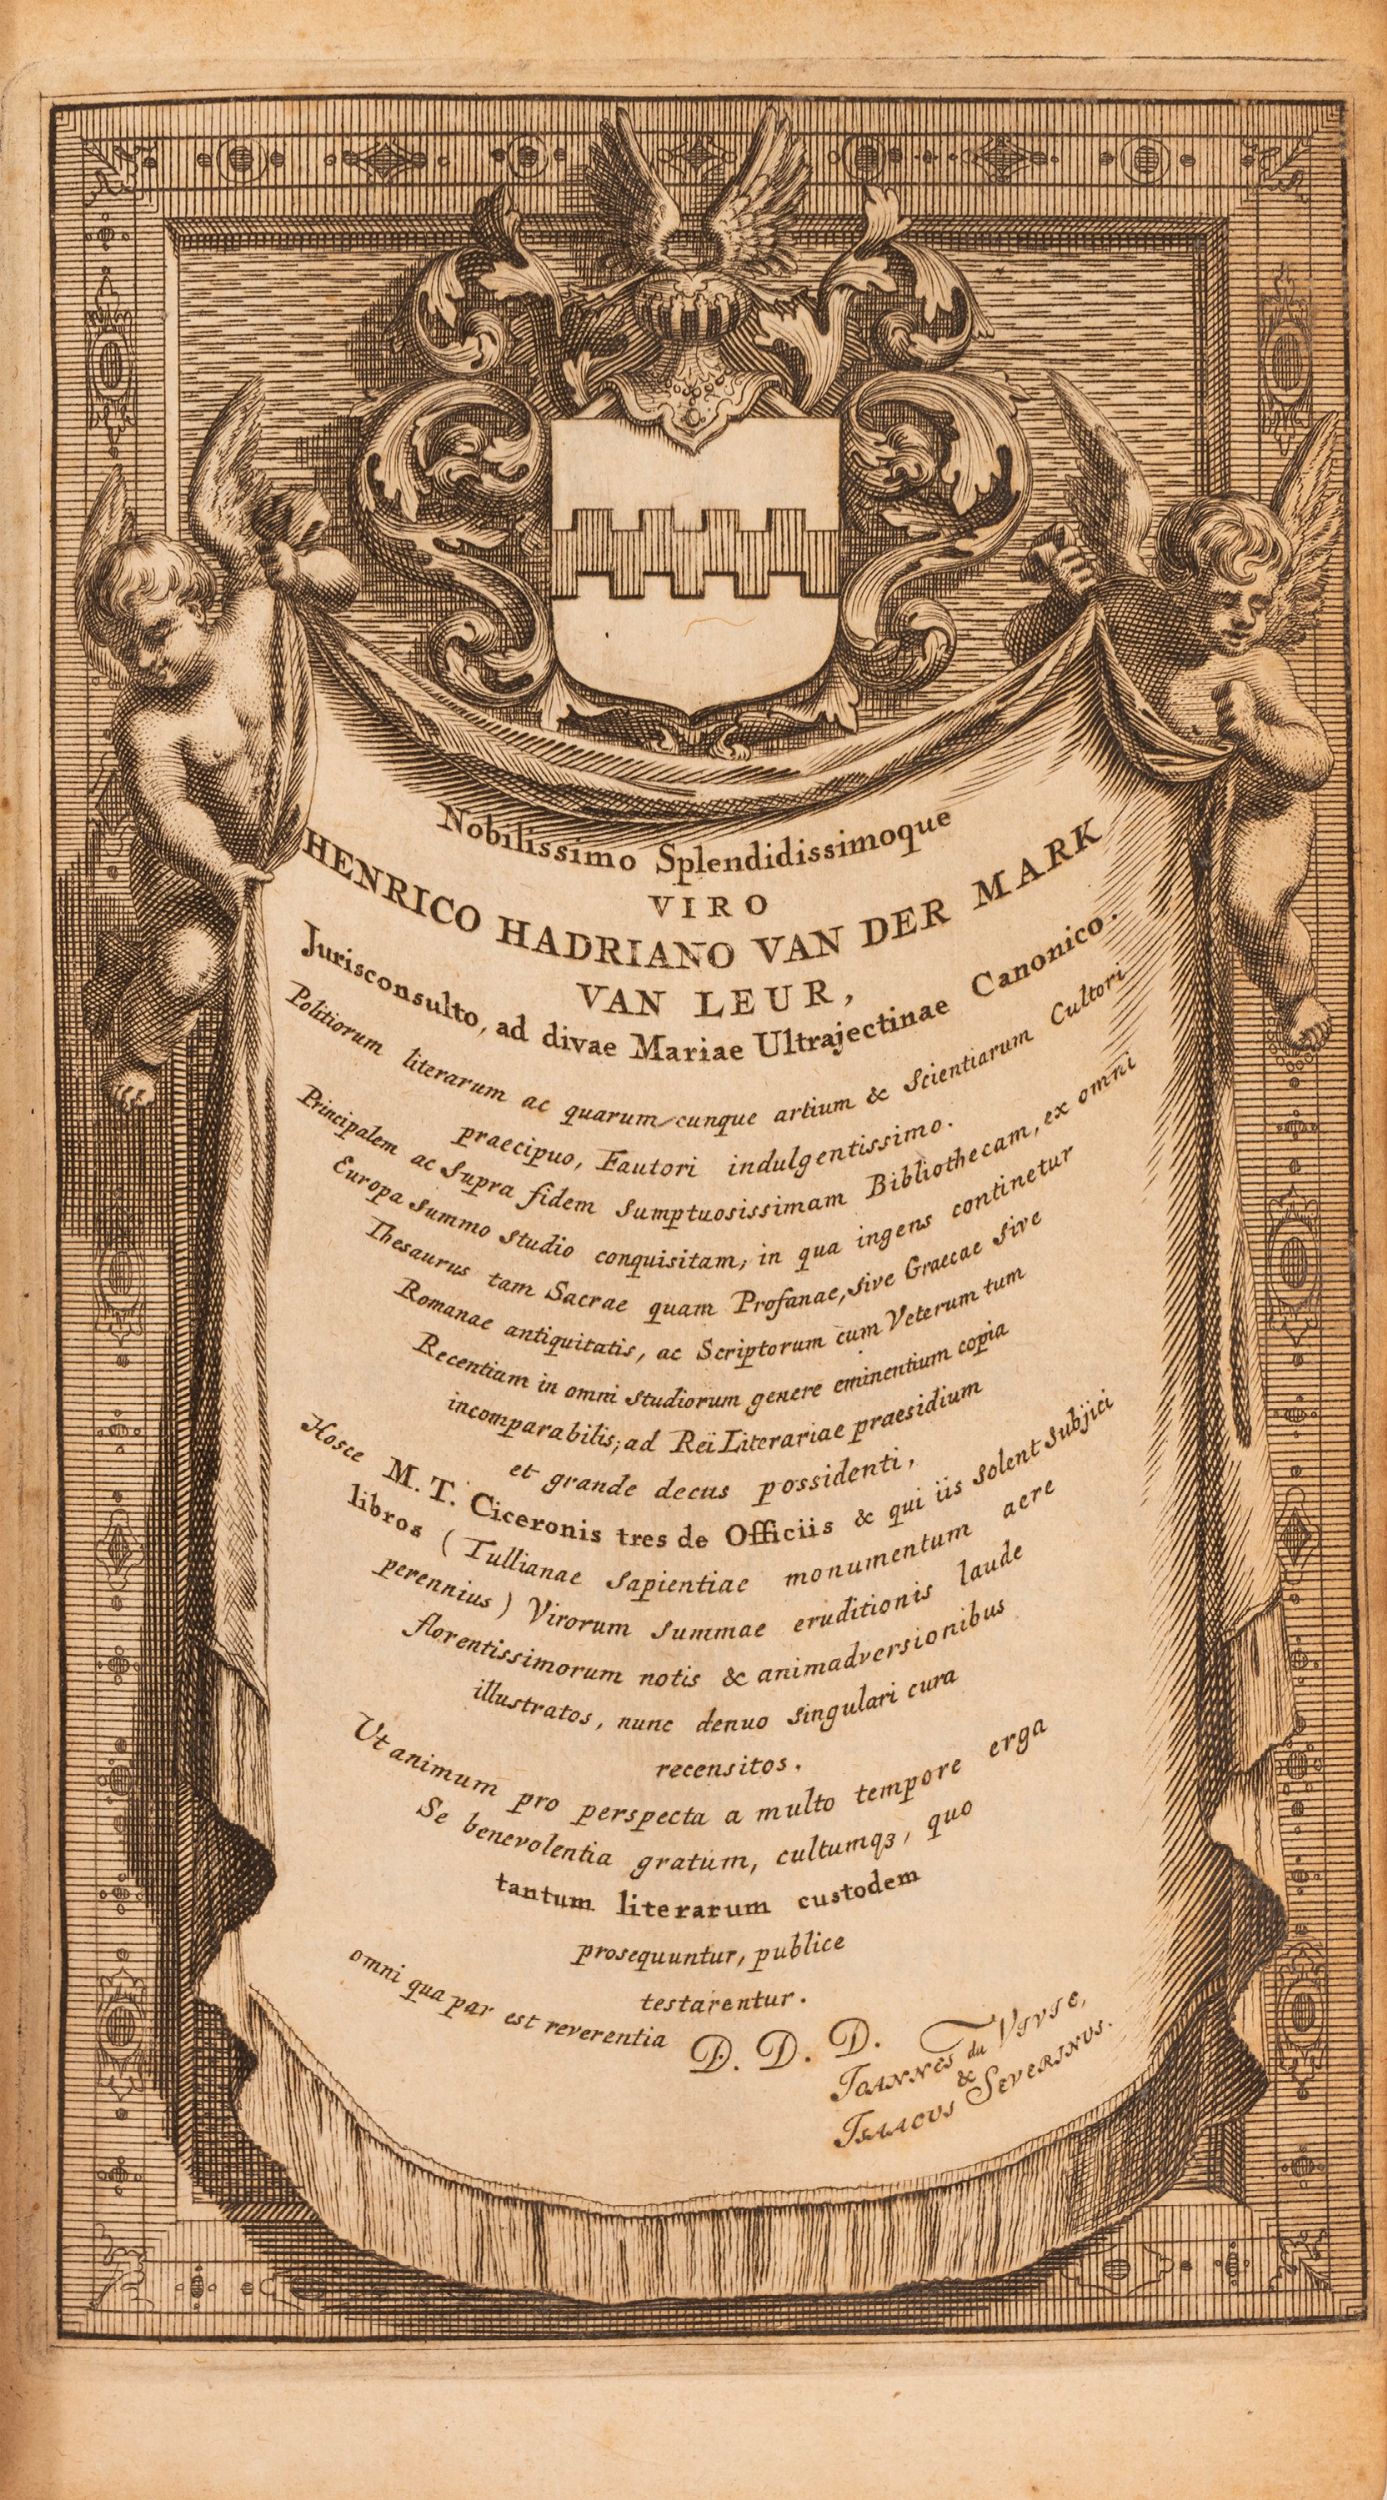 Nobilissimo Splendidissimoque
VIRO
HENRICO HADRIANO VAN DER MARK
VAN LEUR,
Jurisconsulto, ad divae Mariae Ultrajectinae Canonico.
Politiorum literarum ac quarum cunque artium & scientiarum Cultori
praecipuo, Fautori indulgentissimo.
Principalem ac supra fidem sumptuosissimam Bibliothecam, ex omni
Europa summo studio conquisitam, in qua ingens continetur
Thesaurus tam Sacrae quam Profanae, sive Graecae sive
Romanae antiquitatis, ac Scriptorum cum Veterum tum
Recentium in omni studiorum genere eminentium copia
incomparabilis, ad Reï Literariae praesidium
et grande decus possidenti,
Hosce M. T. Ciceronis tres de Officiis & qui iis solent subjici
libros (Tullianae sapientiae monumentum aere
perennius) Virorum summae eruditionis laude
florentissimorum notis & animadversionibus
illustratos, nunc denuo singulari cura
recensitos.
Ut animum pro perspecta a multo tempore erga
Se benevolentia gratum, cultumqꝫ, quo
tantum literarum custodem
prosequuntur, publice
testarentur.
omni qua par est reverentia D. D. D.
IOANNES du VIVIE,
&
ISAACUS SEVERINUS.